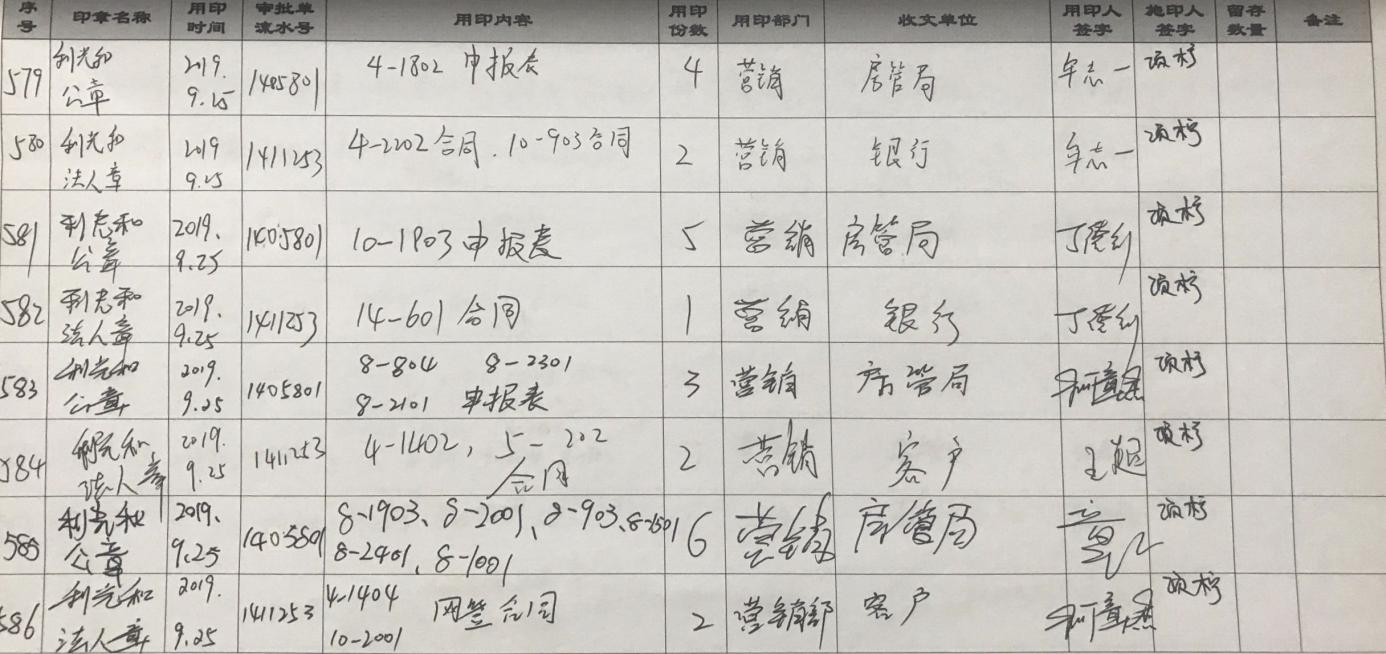 序号 印章名称 用印时间 审批单流水号 用印内容 用印份数 用印部门 收文单位 用印人签字 施印人签字 留存数量 备注
579 利光和公章 2019.9.25 1405801 4-1802 申报表 4 营销 房管局 牟志一
580 利光和法人章 2019 9.25 1411253 4-2202合同、10-903合同 2 营销 银行 牟志一
581 利光和公章 2019.9.25 1405801 10-1903申报表 5 营销 房管局
582 利光和法人章 2019.9.25 1411253 14-601合同 1 营销 银行
583 利光和公章 2019.9.25 1405801 8-804 8-2301 8-2101 申报表 3 营销 房管局
584 利光和法人章 2019.9.25 1411253 4-1402,5-202 合同 2 营销 客户
585 利光和公章 2019.9.25 1405801 8-1903、8-2001、8-903、8-1501 8-2401、8-1001 6 营销 房管局
586 利光和法人章 2019.9.25 1411253 4-1404 10-2001 网签合同 2 营销部 客户